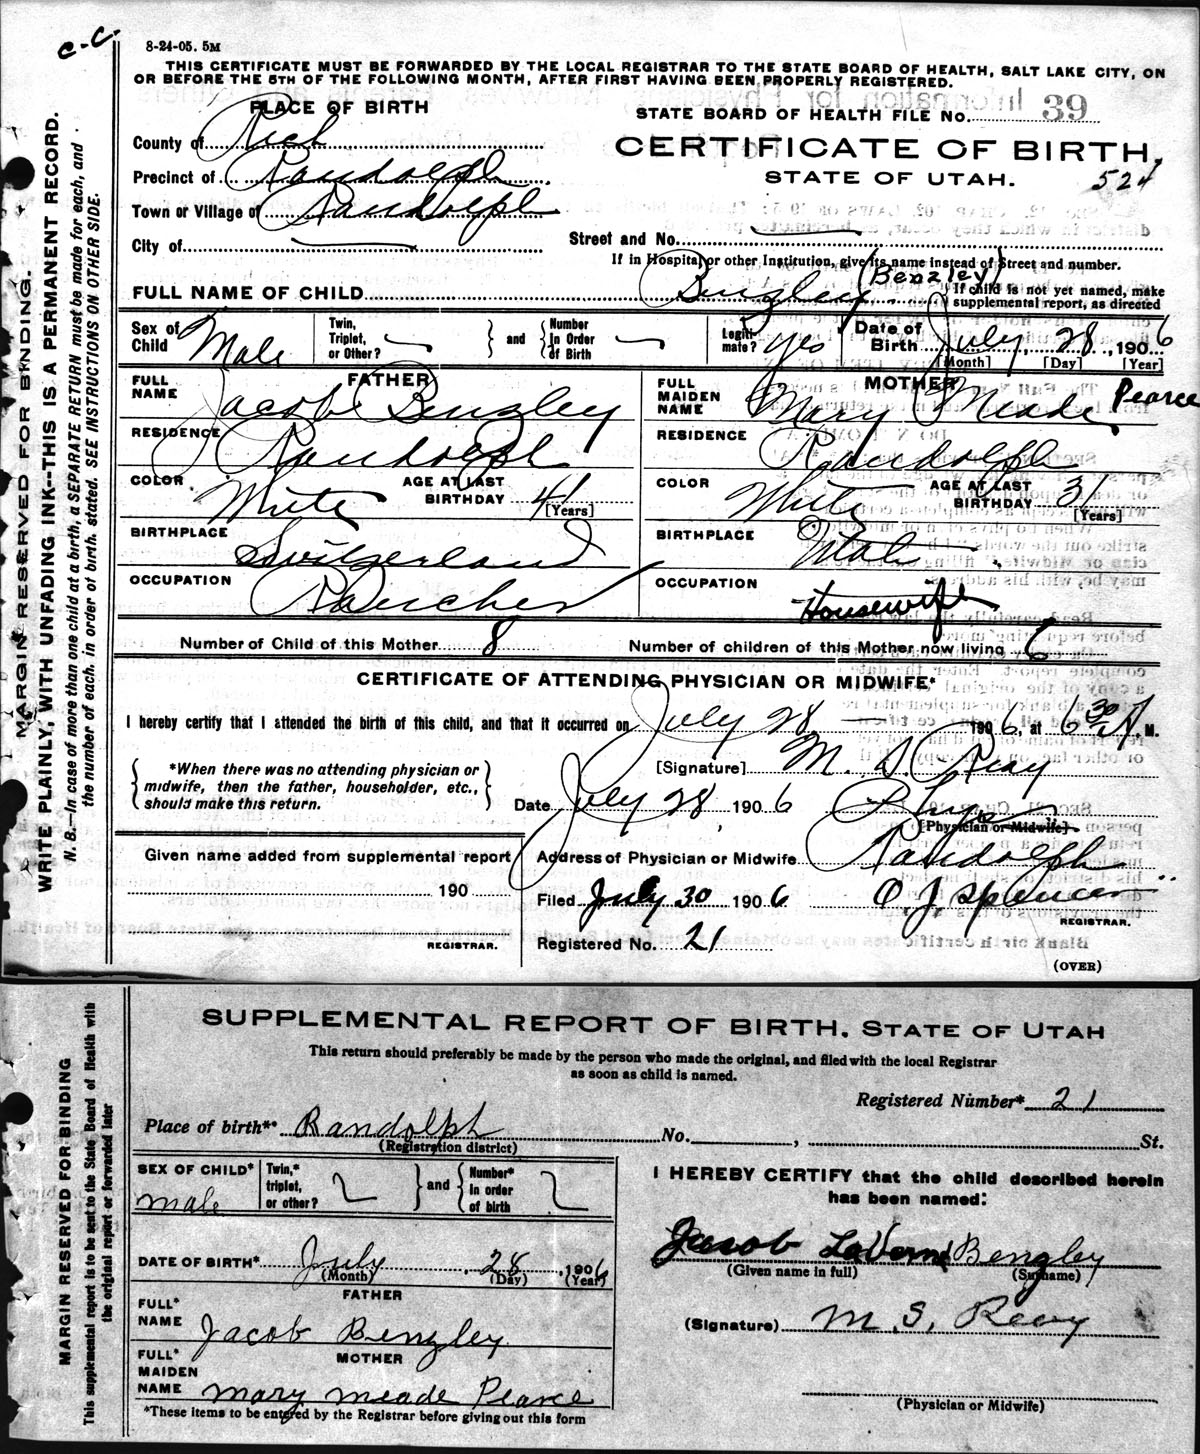 C.C.
8-24-05. 5M
THIS CERTIFICATE MUST BE FORWARDED BY THE LOCAL REGISTRAR TO THE STATE BOARD OF HEALTH, SALT LAKE CITY, ON
OR BEFORE THE 5TH OF THE FOLLOWING MONTH, AFTER FIRST HAVING BEEN PROPERLY REGISTERED.
PLACE OF BIRTH
STATE BOARD OF HEALTH FILE No. 39
County of Rich
CERTIFICATE OF BIRTH,
Precinct of Randolph
STATE OF UTAH.
524
Town or Village of Randolph
City of
Street and No.
If in Hospital or other Institution, give its name instead of Street and number.
FULL NAME OF CHILD Bingley (Benzley)
If child is not yet named, make
supplemental report, as directed
Sex of Child Male
Twin, Triplet, or Other?
and
Number in Order of Birth
Legiti-mate? yes
Date of Birth July 28, 1906
[Month] [Day] [Year]
FATHER
FULL NAME Jacob Bengley
RESIDENCE Randolph
COLOR White
AGE AT LAST BIRTHDAY 41
[Years]
BIRTHPLACE Switzerland
OCCUPATION Rancher
MOTHER
FULL MAIDEN NAME Mary Meade Pearce
RESIDENCE Randolph
COLOR White
AGE AT LAST BIRTHDAY 31
[Years]
BIRTHPLACE Utah
OCCUPATION Housewife
Number of Child of this Mother 8
Number of children of this Mother now living 6
CERTIFICATE OF ATTENDING PHYSICIAN OR MIDWIFE*
I hereby certify that I attended the birth of this child, and that it occurred on July 28 1906, at 6 30 A M.
*When there was no attending physician or
midwife, then the father, householder, etc.,
should make this return.
[Signature] M. S. Reay
Date July 28, 1906
[Physician or Midwife]
Given name added from supplemental report
190
REGISTRAR.
Address of Physician or Midwife Randolph
Filed July 30 1906 O. J. Spencer
REGISTRAR.
Registered No. 21
(OVER)
MARGIN RESERVED FOR BINDING.
WRITE PLAINLY, WITH UNFADING INK--THIS IS A PERMANENT RECORD.
N. B.—In case of more than one child at a birth, a SEPARATE RETURN must be made for each, and
the number of each, in order of birth, stated. SEE INSTRUCTIONS ON OTHER SIDE.
SUPPLEMENTAL REPORT OF BIRTH. STATE OF UTAH
This return should preferably be made by the person who made the original, and filed with the local Registrar
as soon as child is named.
Registered Number* 21
Place of birth* Randolph No. , St.
(Registration district)
SEX OF CHILD* male
Twin,* triplet, or other?
and
Number* in order of birth
DATE OF BIRTH* July 28, 1906
(Month) (Day) (Year)
FATHER
FULL* NAME Jacob Bengley
MOTHER
FULL* MAIDEN NAME Mary Meade Pearce
*These items to be entered by the Registrar before giving out this form
I HEREBY CERTIFY that the child described herein
has been named:
Jacob LaVern Bengley
(Given name in full) (Surname)
(Signature) M. S. Reay
(Physician or Midwife)
MARGIN RESERVED FOR BINDING
This supplemental report is to be sent to the State Board of Health with
the original report or forwarded later